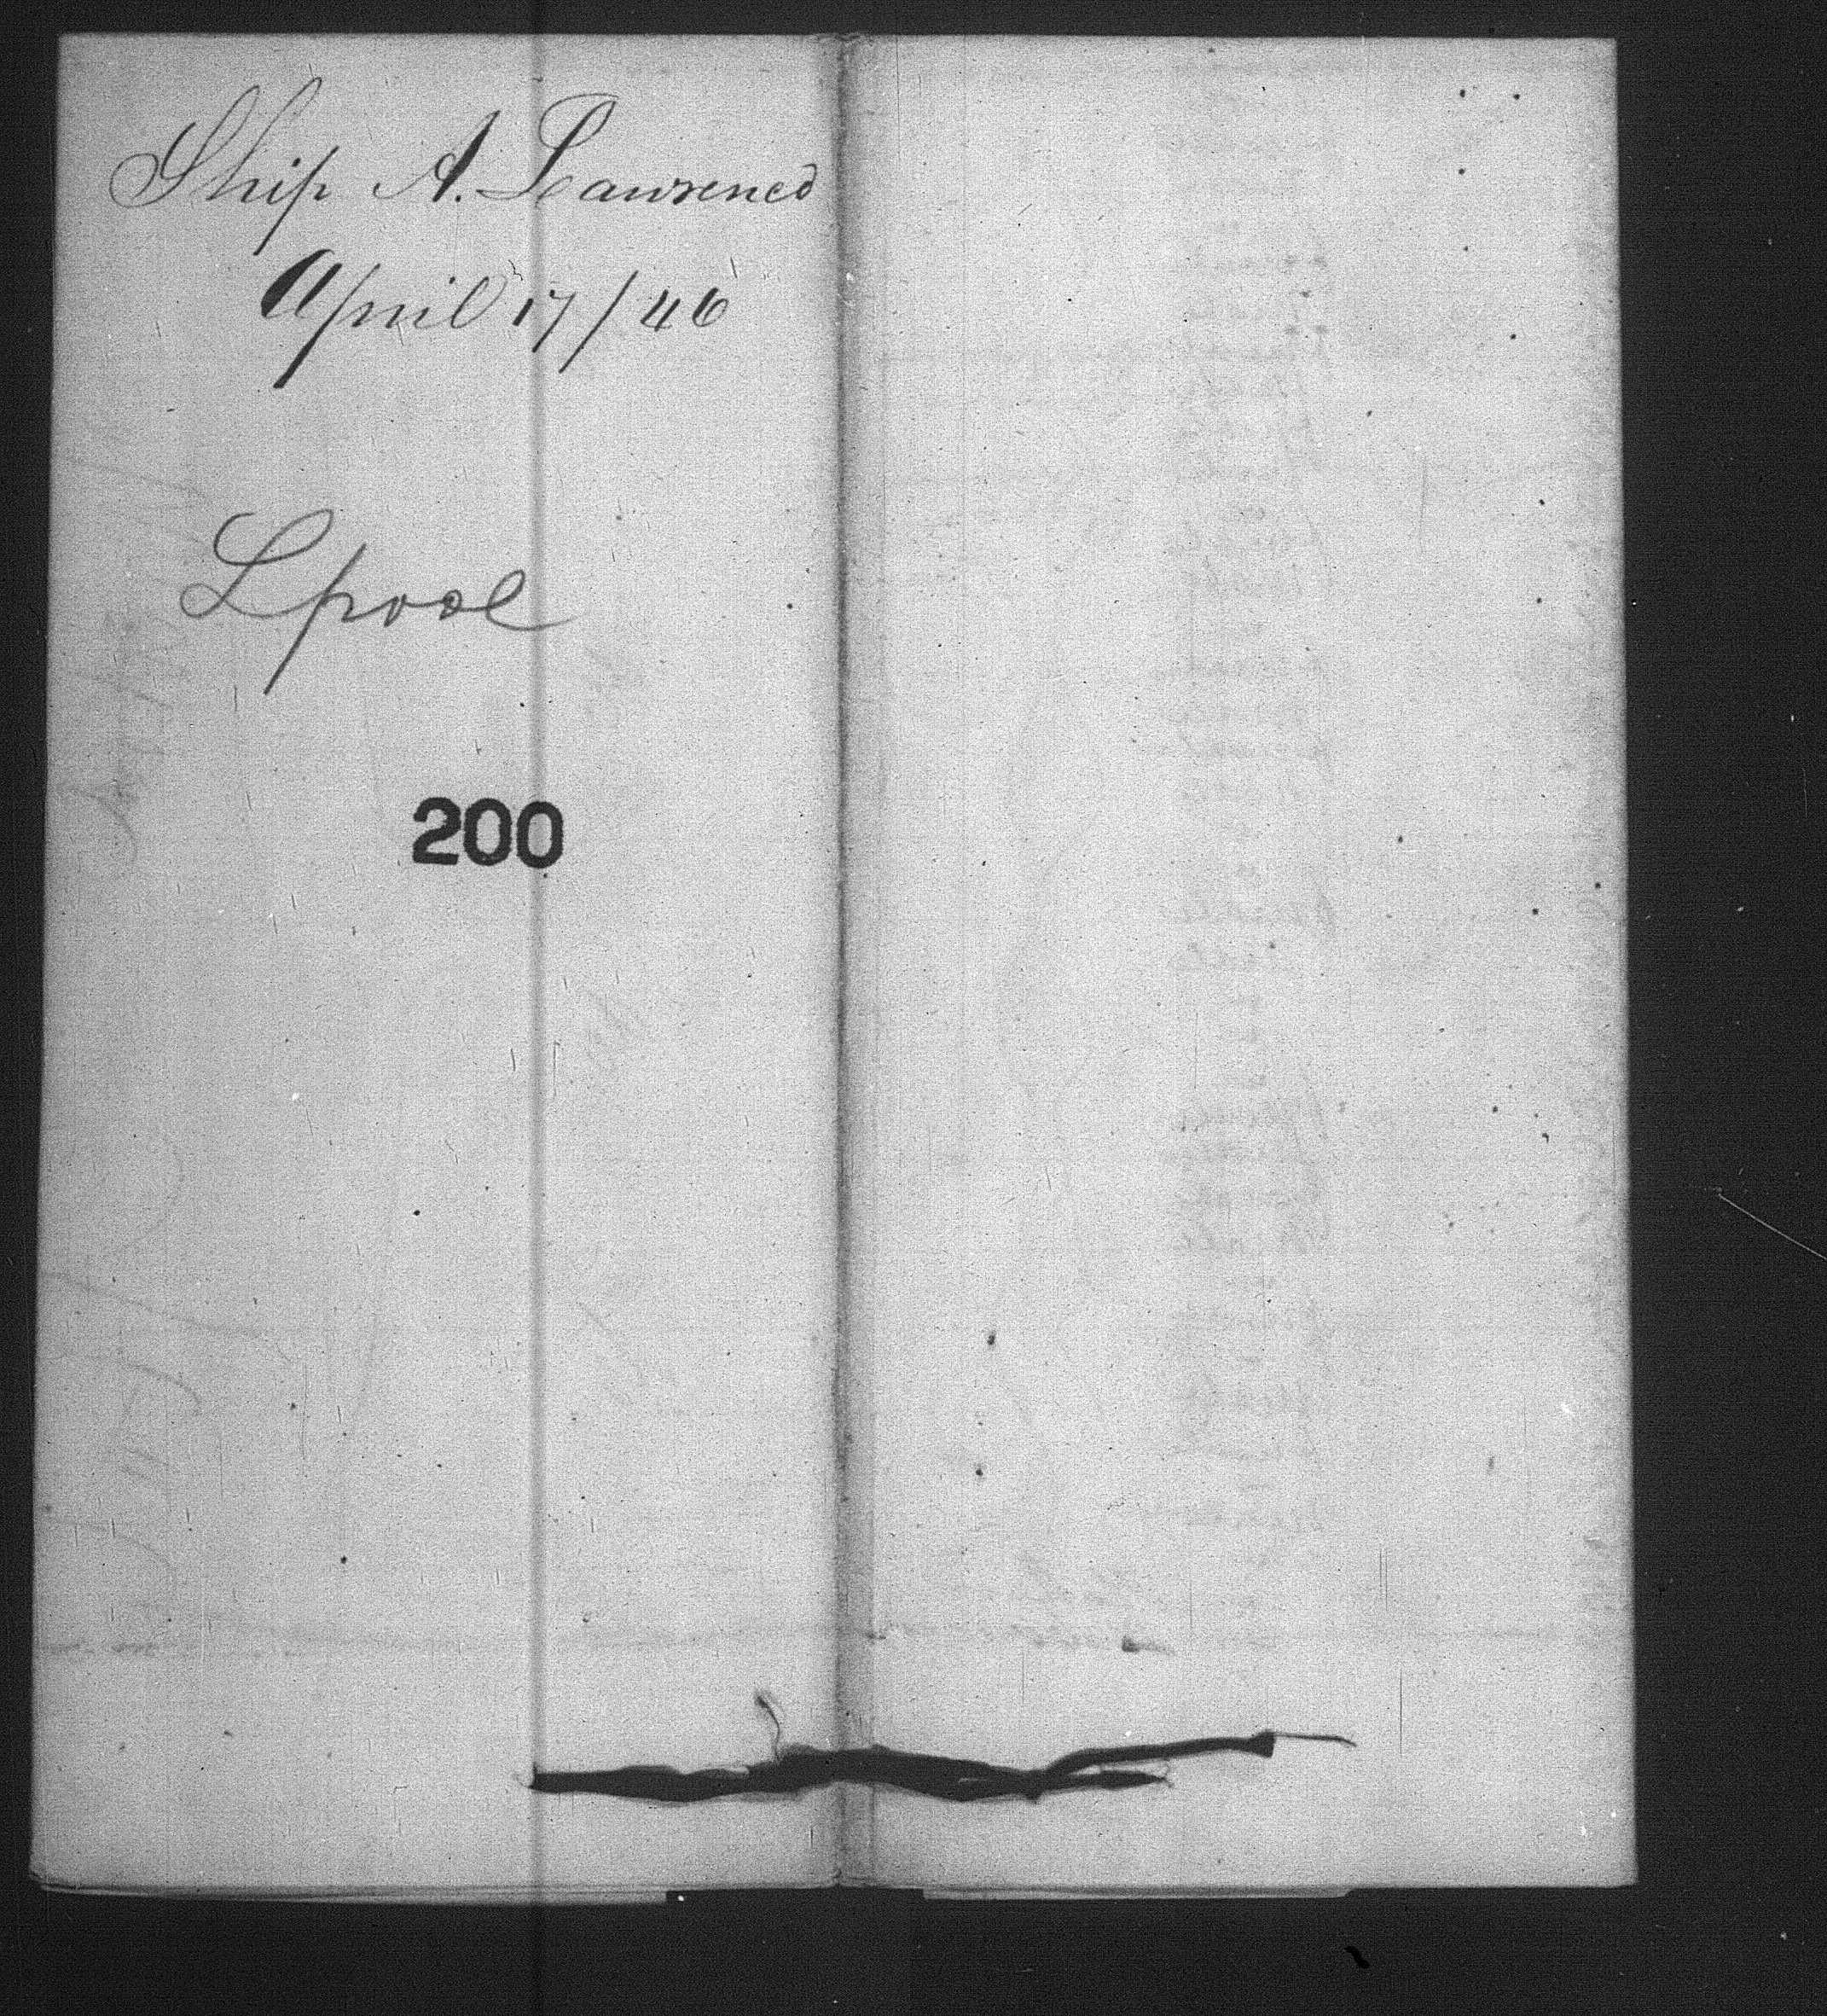 Ship A. Lawrence
April 17/46
Lpool
200